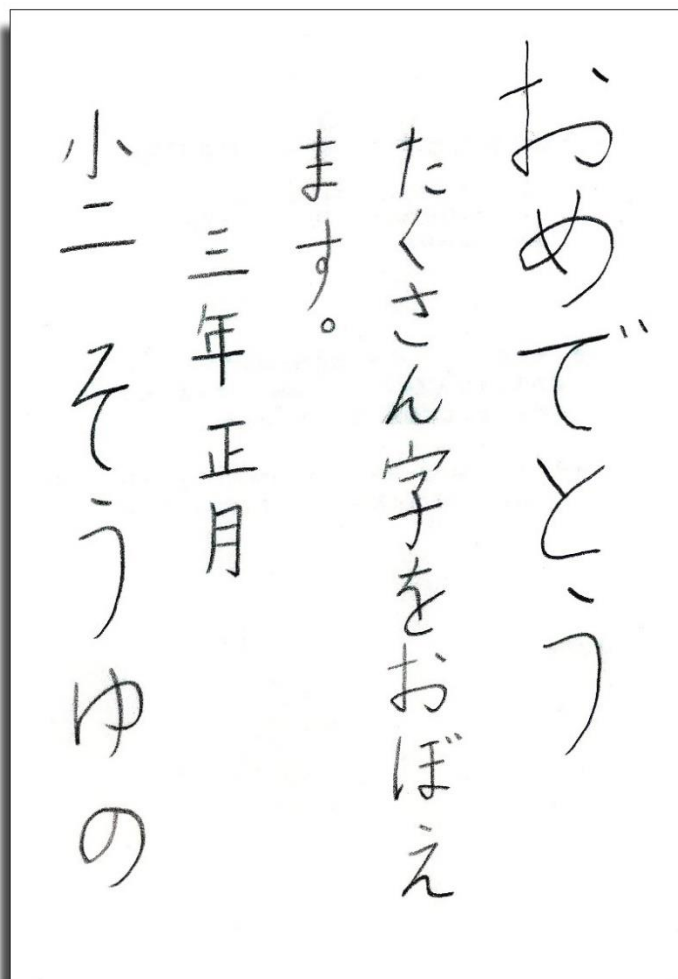 おめでとう
たくさん字をおぼえ
ます。
三年正月
小二 そうゆの